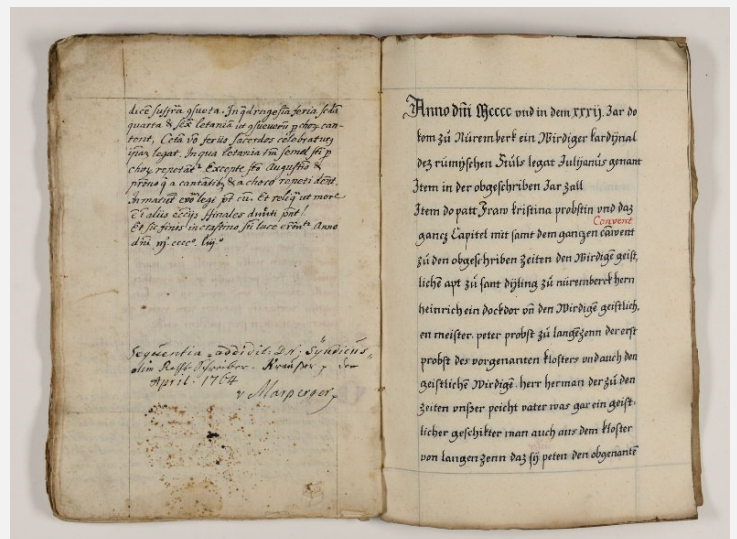 dicē suffrā ꝯsueta. In q̄dragesīa feria scd̄a
quarta & sexta letaniā ut ꝯsueverūt ꝑ choꝝ can-
tent, Cetīs vō feriis sacerdos celebraturꝰ
ipsaꝫ legat. In qua letania tm̄ semel sti ꝑ
choꝝ repetāt. Excepto sto Augustino &
a cantatiƀꝫ & a choro repeti dn̄t.
legi pt cū. Et reliq̄ ut more
diuīti pn̄t.
Et sic finis in crastino sti luce ewāte Anno
dnī m. cccc. liij.º
Sequentia addidit: Dn. Syndicus,
olim Raths Schreiber. Kreußer, den
April: 1764
v Marperger
Anno dn̄i Mcccc vnd in dem xxxij. Jar do
kom zů Nůremberk ein Wirdiger kardynal
dez růmyschen Stůls legat Julijanůs genant
Item in der obgeschriben Jar zall
Item do patt Fraw kristina probstin vnd daz
Convent
gancz Capitel mit samt dem ganczen canvent
zů den obgeschriben zeiten den Wirdigē geist,
lichē apt zů sant dijling zů nůremberck hern
heinrich ein dockdor vn̄ den Wirdigē geistlich,
en meister. peter probst zů langēzenn der erst
probst des vorgenanten klosters vnd auch den
geistlichē Wirdigē. herr herman der zů den
zeiten vnßer peicht vater was gar ein geist.
licher geschikter man auch aus dem kloster
von langen zenn daz sÿ peten den obgenantē